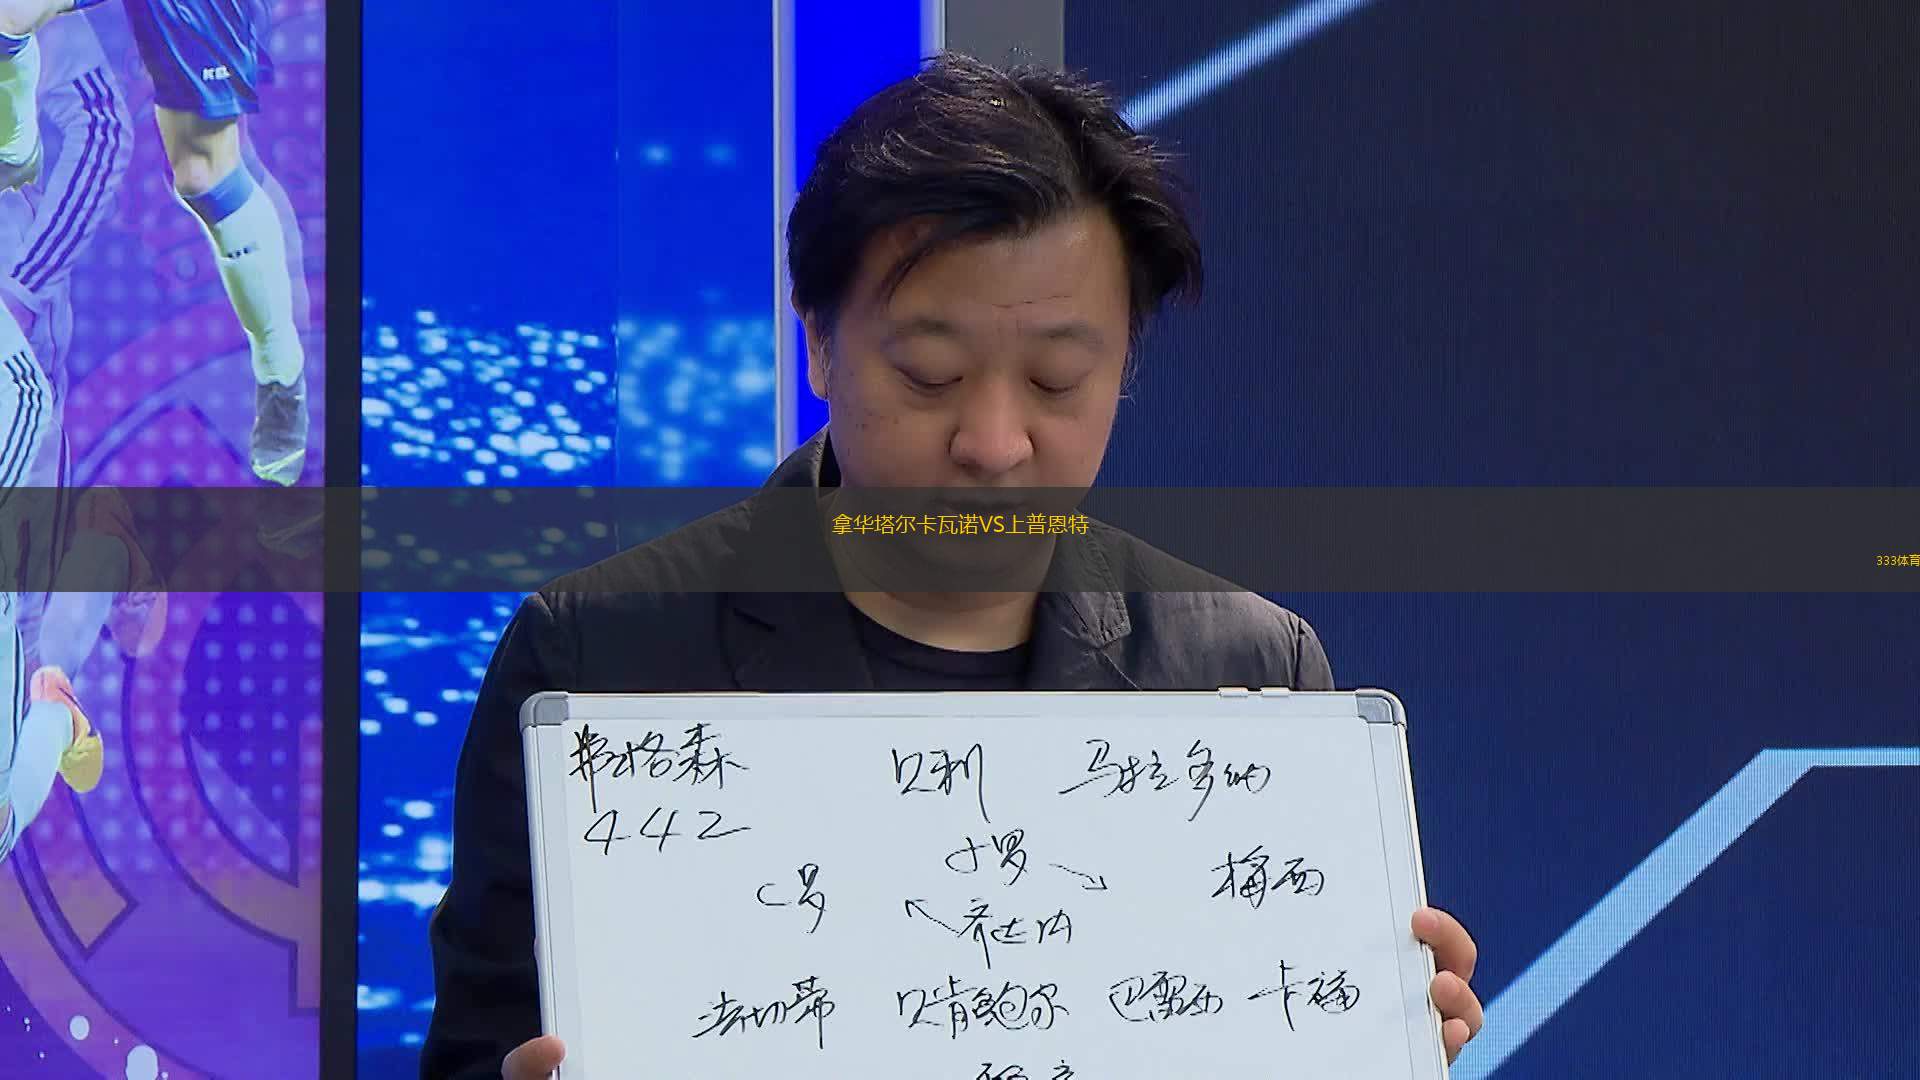 拿华塔尔卡瓦诺VS上普恩特
333体育
弗格森 贝利 马拉多纳
442
小罗
C罗 梅西
齐达内
法切蒂 贝肯鲍尔 巴雷西 卡福